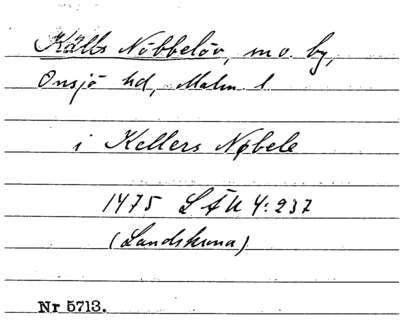 Källs Nöbbelöv, mo. by,
Onsjö hd, Malm. l
i Kellers Nøbele
1475 LÄU 4:237
(Landskrona)
Nr 5713.